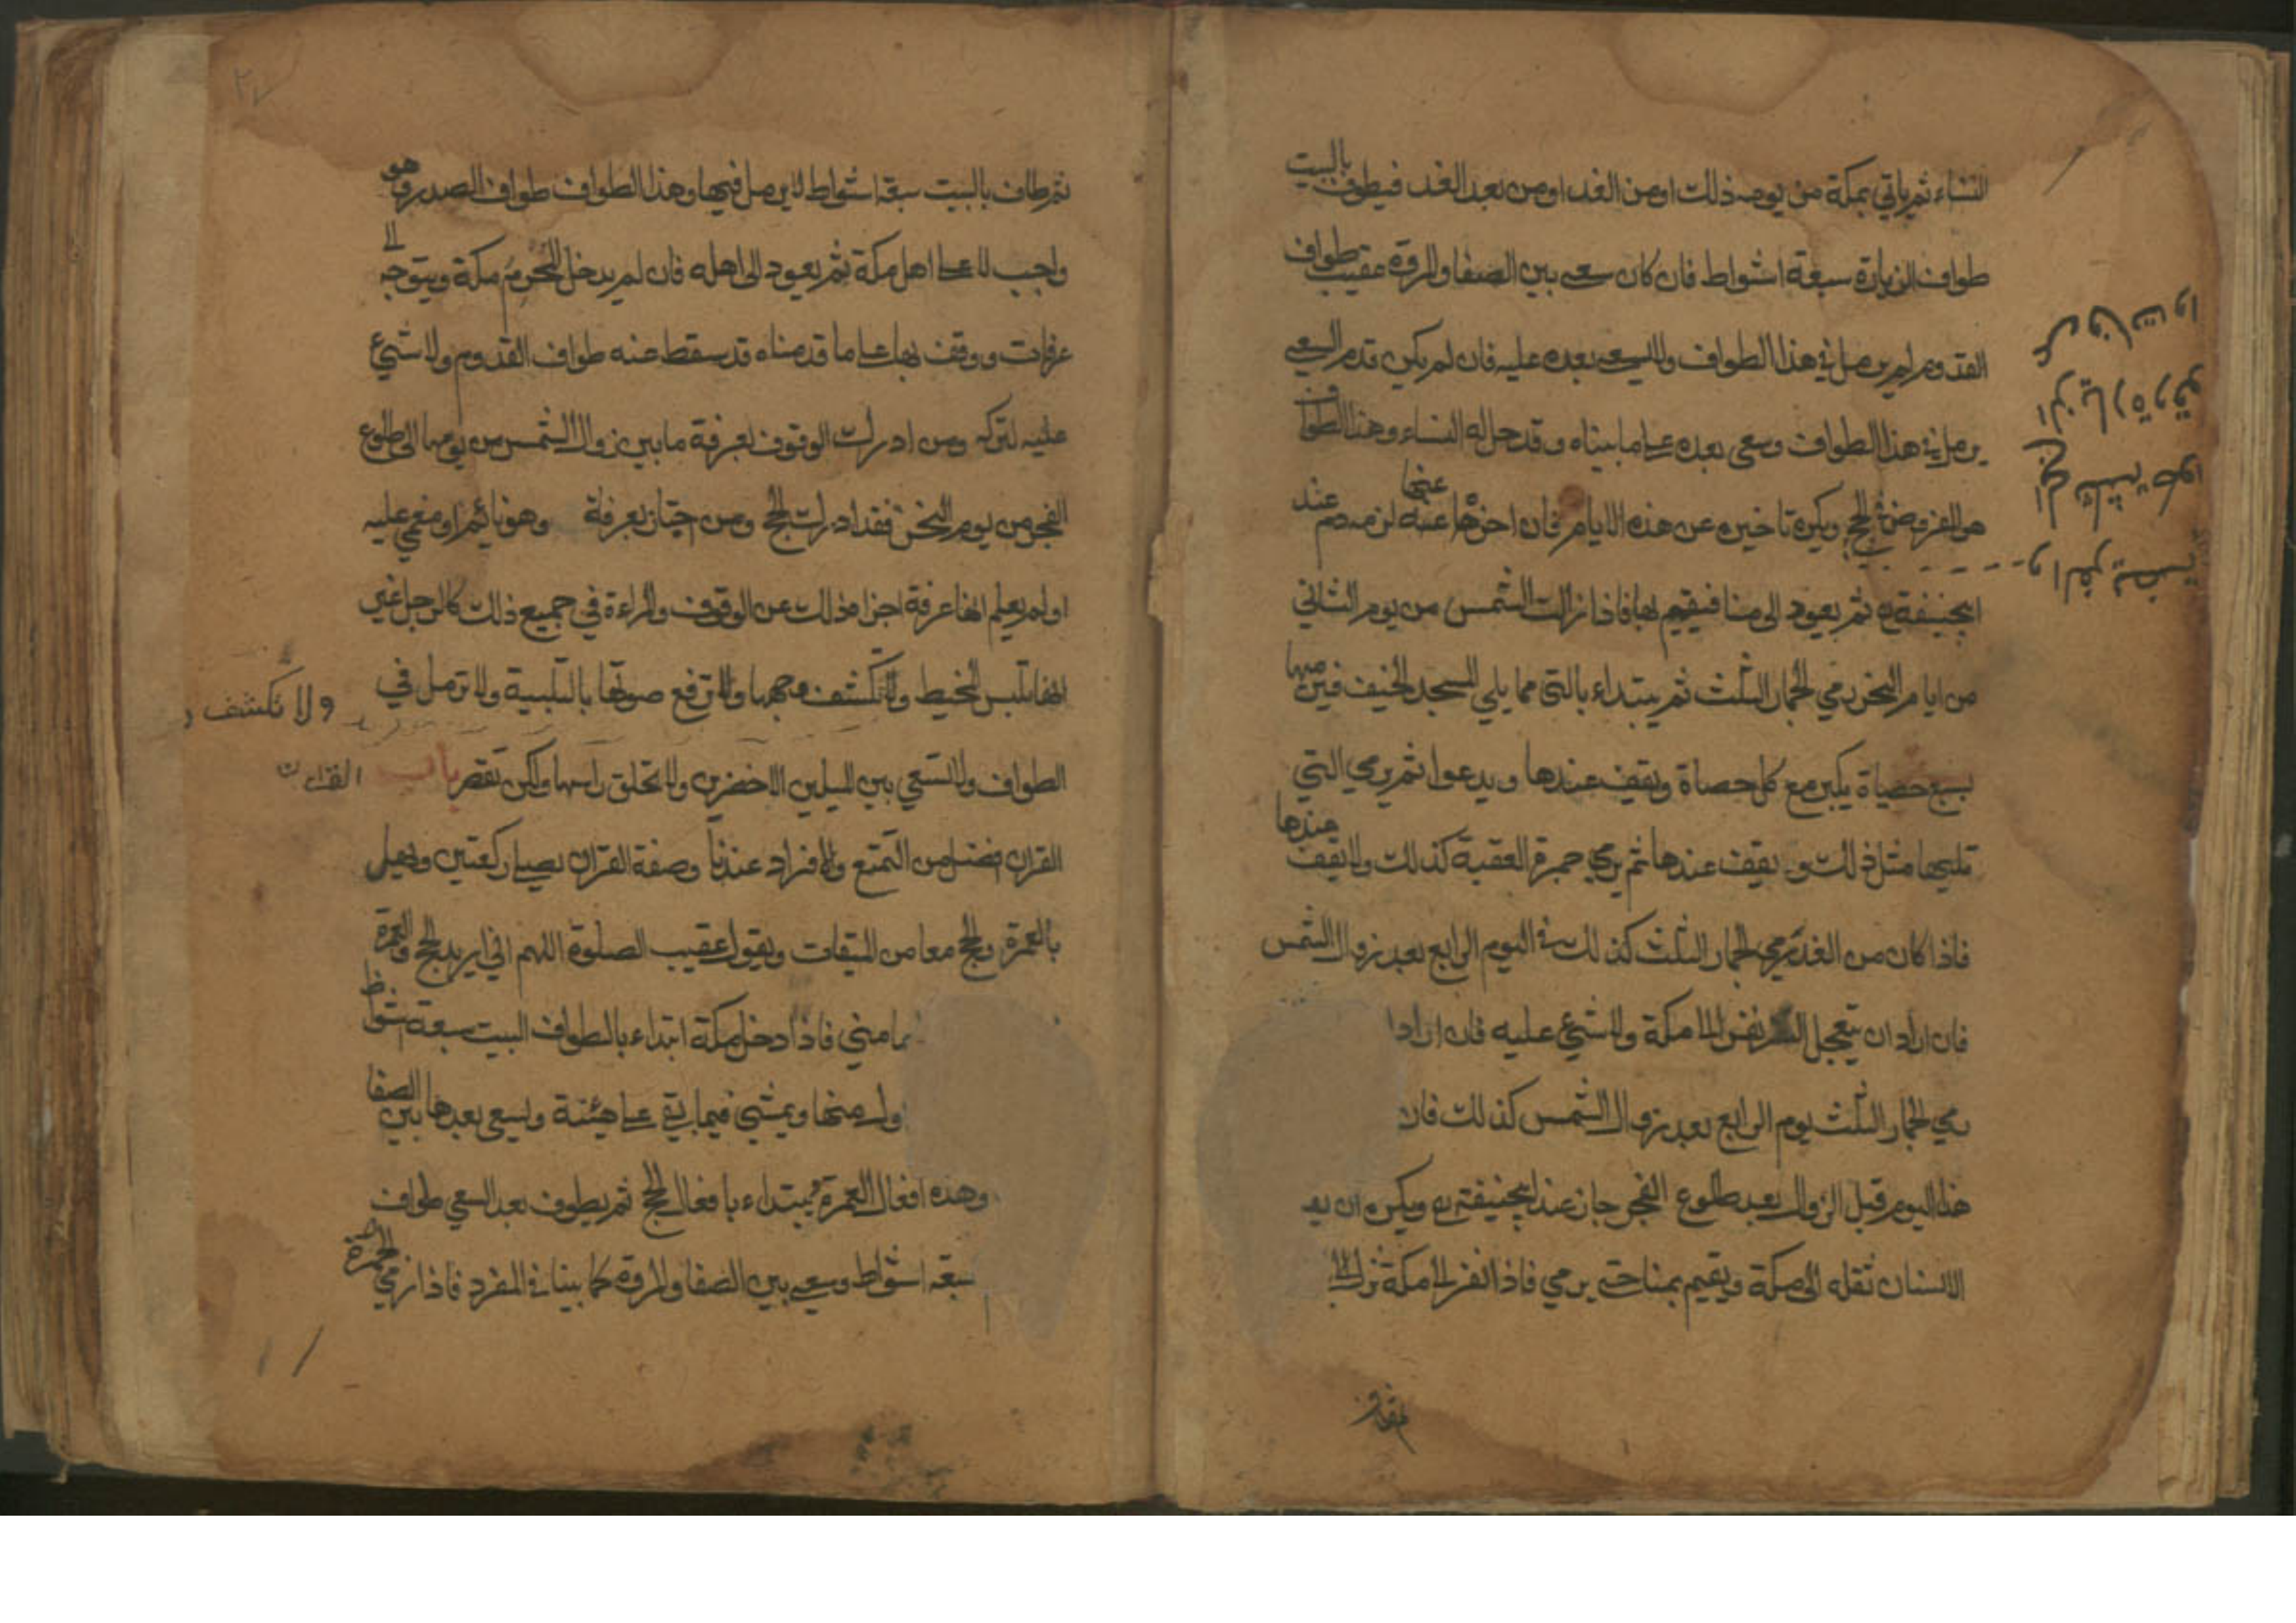 النساء ثم ياتي بمكة من يومه ذلك او من الغد او من بعد الغد فيطوف بالبيت
طواف الزيارة سبعة اشواط فان كان سعى بين الصفا والمروة عقيب طواف
القدوم لم يرمل في هذا الطواف ولا سعى بعده عليه فان لم يكن قدم السعي
يرمل في هذا الطواف وسعى بعده على ما بيناه وقد حل له النساء وهذا الطواف
هو الفروض في الحج ويكره تاخيره عن هذه الايام فان اخره عنها لزمه دم عند
ابيحنيفة ثم يعود الى منا فيقيم بها فاذا زالت الشمس من يوم الثاني
من ايام النحر رمي الجمار الثلث ثم يبتداء بالتي مما يلي المسجد الخيف فيرميها
بسبع حصياة يكبر مع كل حصاة ويقف عندها ويدعوا ثم يرمي التي
تليها مثل ذلك ويقف عندها ثم يرمي جمرة العقبة كذلك ولا يقف عندها
فاذا كان من الغد رمي الجمار الثلث كذلك في اليوم الرابع بعد زوال الشمس
فان اراد ان يتعجل النفر نفر الى مكة ولا شيئ عليه فان اراد
رمي الجمار الثلث يوم الرابع بعد زوال الشمس كذلك فان
هذا اليوم قبل الزوال بعد طلوع الفجر جاز عند ابيحنيفة ويكره ان يقد
الانسان ثقله الى مكة ويقيم بمنا حتى يرمي فاذا نفر الى مكة نزل
ثم طاف بالبيت سبعة اشواط لا يرمل فيها وهذا الطواف طواف الصدر وهو
واجب الا على اهل مكة ثم يعود الى اهله فان لم يدخل المحرم مكة ويتوجه الى
عرفات ووقف بها على ما قدمناه قد سقط عنه طواف القدوم ولا شيئ
عليه لتركه ومن ادرك الوقوف بعرفة ما بين زوال الشمس من يومها الى طلوع
الفجر من يوم النحر فقد ادرك الحج ومن اجتاز بعرفة وهو نائم او مغمي عليه
او لم يعلم انها عرفة اجزاه ذلك عن الوقوف والمراءة في جميع ذلك كالرجل غير
انها تلبس المخيط ولا تكشف وجهها ولا ترفع صوتها بالتلبية ولا ترمل في
ولا تكشف و
الطواف ولا تسعي بين الميلين الاخضرين ولا تحلق راسها ولكن تقصر باب القران
القران افضل من التمتع والافراد عندنا وصفة القران يصلي ركعتين ويهل
بالعمرة والحج معا من الميقات ويقول عقيب الصلوة اللهم اني اريد الحج والعمرة
مني فاذا دخل مكة ابتداء بالطواف البيت سبعة اشواط
ول منها ويمشي فيما بقي على هيئته ويسعى بعدها بين الصفا
وهذه افعال العمرة ثم يبتداء بافعال الحج ثم يطوف بعد السعي طواف
سبعة اشواط وسعى بين الصفا والمروة كما بينا في المفرد فاذا رمي الجمرة